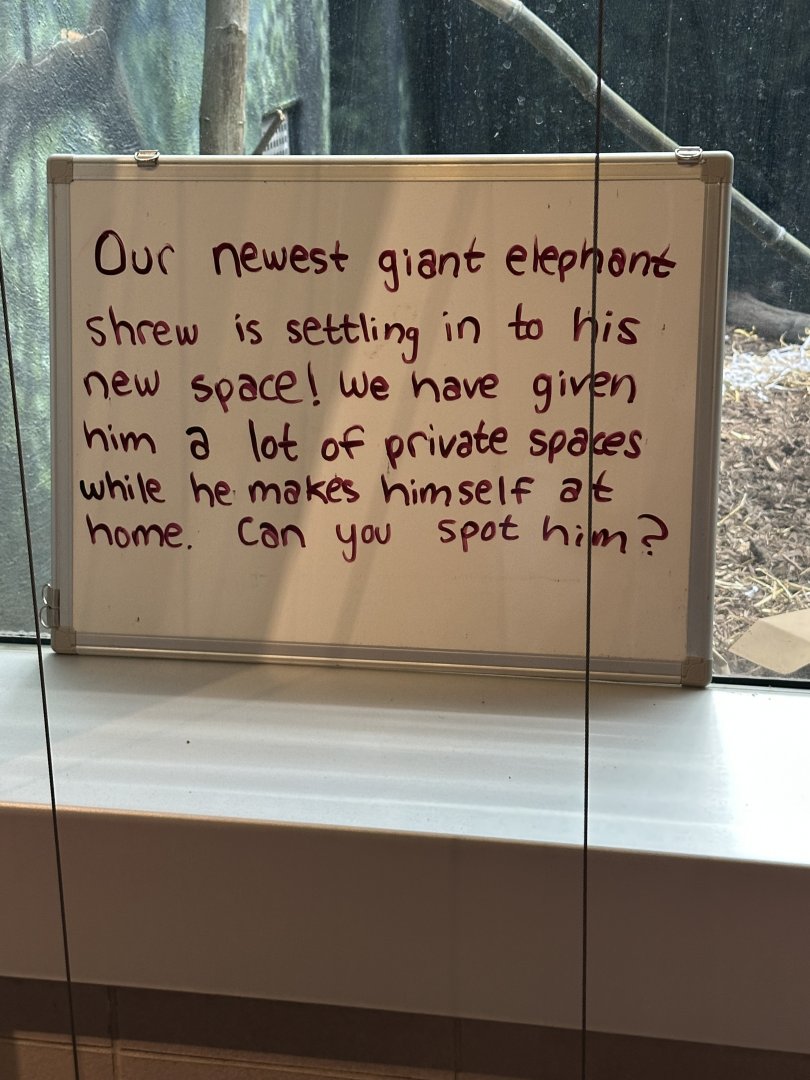 Our newest giant elephant
shrew is settling in to his
new space! We have given
him a lot of private spaces
while he makes himself at
home. Can you spot him?